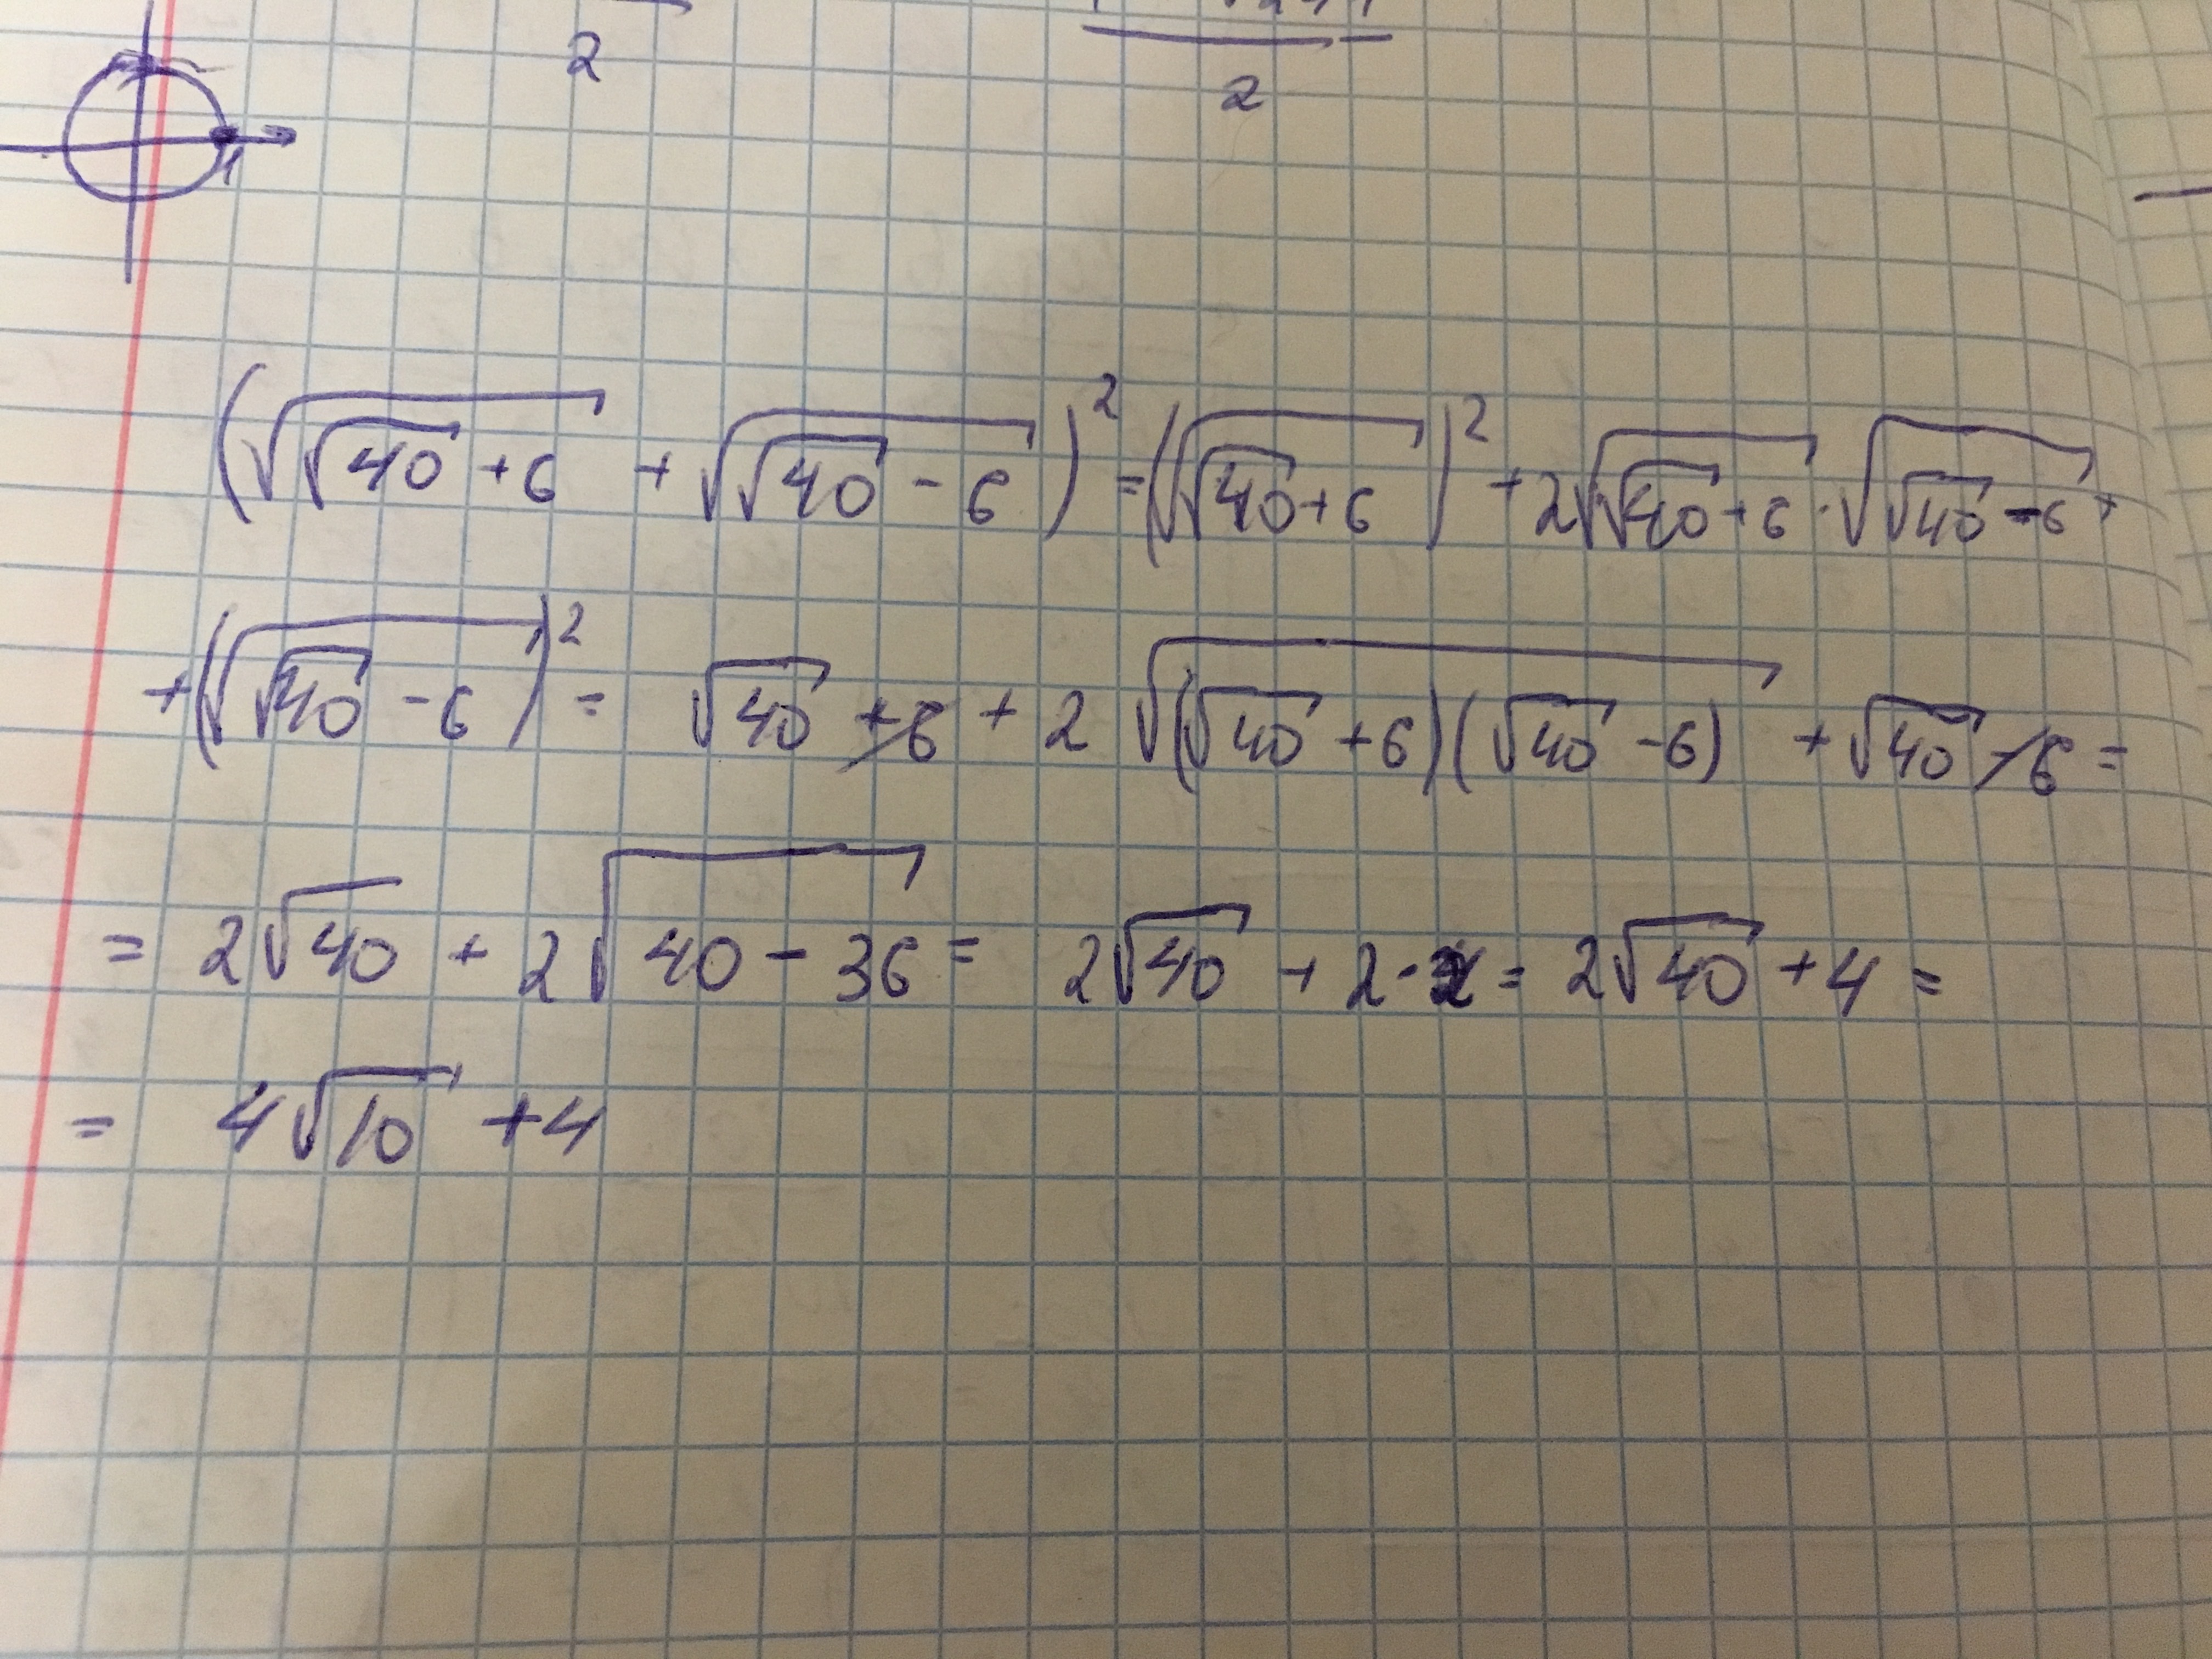 2
2
1
(√(√40 + 6) + √(√40 - 6))² = (√(√40 + 6))² + 2√(√40 + 6) · √(√40 - 6) +
+ (√(√40 - 6))² = √40 + 6 + 2√((√40 + 6)(√40 - 6)) + √40 - 6 =
= 2√40 + 2√(40 - 36) = 2√40 + 2 · 2 = 2√40 + 4 =
= 4√10 + 4